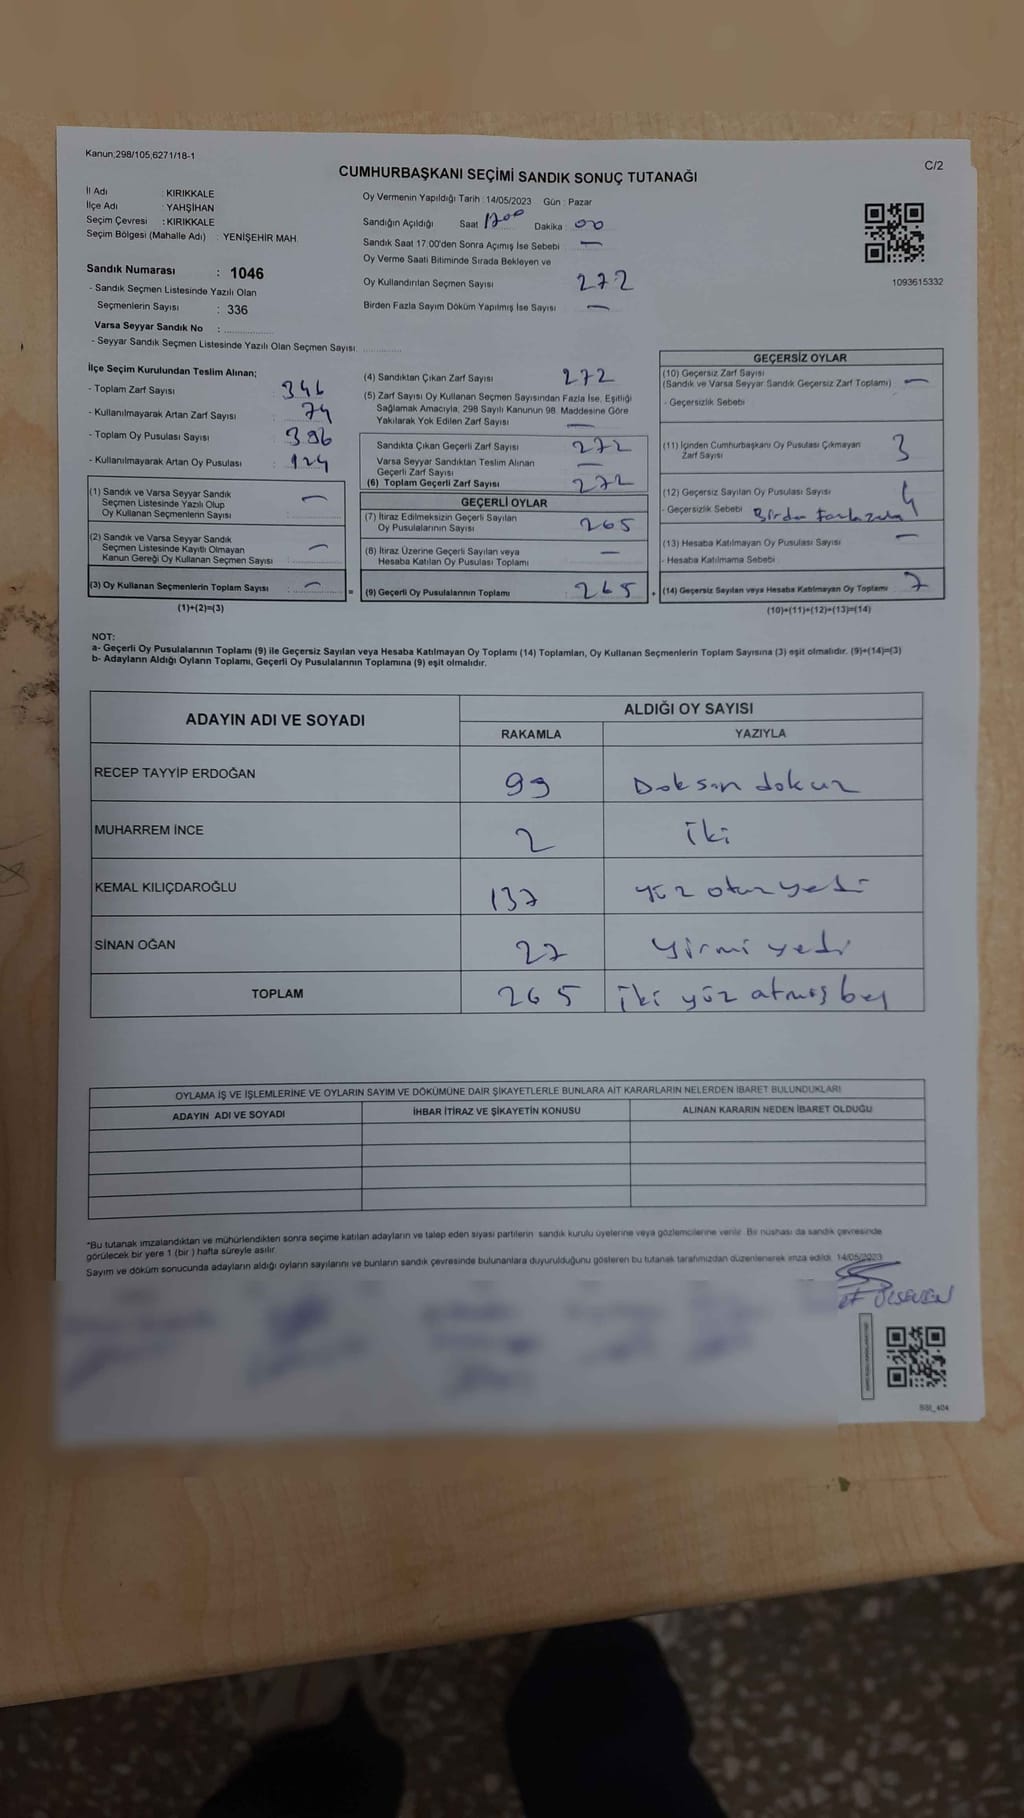 Kanun,298/105,6271/18-1
C/2
CUMHURBAŞKANI SEÇİMİ SANDIK SONUÇ TUTANAĞI
İl Adı : KIRIKKALE
İlçe Adı : YAHŞİHAN
Seçim Çevresi : KIRIKKALE
Seçim Bölgesi (Mahalle Adı) : YENİŞEHİR MAH.
Sandık Numarası : 1046
- Sandık Seçmen Listesinde Yazılı Olan
Seçmenlerin Sayısı : 336
Varsa Seyyar Sandık No :
- Seyyar Sandık Seçmen Listesinde Yazılı Olan Seçmen Sayısı:
Oy Vermenin Yapıldığı Tarih : 14/05/2023 Gün : Pazar
Sandığın Açıldığı Saat 1700 Dakika : 00
Sandık Saat 17.00'den Sonra Açımış İse Sebebi : —
Oy Verme Saati Bitiminde Sırada Bekleyen ve
Oy Kullandırılan Seçmen Sayısı 272
Birden Fazla Sayım Döküm Yapılmış İse Sayısı : —
1093615332
İlçe Seçim Kurulundan Teslim Alınan;
- Toplam Zarf Sayısı : 346
- Kullanılmayarak Artan Zarf Sayısı : 74
- Toplam Oy Pusulası Sayısı : 396
- Kullanılmayarak Artan Oy Pusulası : 124
(1) Sandık ve Varsa Seyyar Sandık
Seçmen Listesinde Yazılı Olup
Oy Kullanan Seçmenlerin Sayısı : —
(2) Sandık ve Varsa Seyyar Sandık
Seçmen Listesinde Kayıtlı Olmayan
Kanun Gereği Oy Kullanan Seçmen Sayısı : —
(3) Oy Kullanan Seçmenlerin Toplam Sayısı : —
(1)+(2)=(3)
(4) Sandıktan Çıkan Zarf Sayısı : 272
(5) Zarf Sayısı Oy Kullanan Seçmen Sayısından Fazla İse, Eşitliği
Sağlamak Amacıyla, 298 Sayılı Kanunun 98. Maddesine Göre
Yakılarak Yok Edilen Zarf Sayısı : —
Sandıkta Çıkan Geçerli Zarf Sayısı : 272
Varsa Seyyar Sandıktan Teslim Alınan
Geçerli Zarf Sayısı : —
(6) Toplam Geçerli Zarf Sayısı : 272
GEÇERLİ OYLAR
(7) İtiraz Edilmeksizin Geçerli Sayılan
Oy Pusulalarının Sayısı : 265
(8) İtiraz Üzerine Geçerli Sayılan veya
Hesaba Katılan Oy Pusulası Toplamı : —
= (9) Geçerli Oy Pusulalarının Toplamı : 265
GEÇERSİZ OYLAR
(10) Geçersiz Zarf Sayısı
(Sandık ve Varsa Seyyar Sandık Geçersiz Zarf Toplamı) : —
- Geçersizlik Sebebi :
(11) İçinden Cumhurbaşkanı Oy Pusulası Çıkmayan
Zarf Sayısı : 3
(12) Geçersiz Sayılan Oy Pusulası Sayısı : 4
- Geçersizlik Sebebi : Birden Fazla
(13) Hesaba Katılmayan Oy Pusulası Sayısı : —
- Hesaba Katılmama Sebebi :
+ (14) Geçersiz Sayılan veya Hesaba Katılmayan Oy Toplamı : 7
(10)+(11)+(12)+(13)=(14)
NOT:
a- Geçerli Oy Pusulalarının Toplamı (9) ile Geçersiz Sayılan veya Hesaba Katılmayan Oy Toplamı (14) Toplamları, Oy Kullanan Seçmenlerin Toplam Sayısına (3) eşit olmalıdır. (9)+(14)=(3)
b- Adayların Aldığı Oyların Toplamı, Geçerli Oy Pusulalarının Toplamına (9) eşit olmalıdır.
ADAYIN ADI VE SOYADI
ALDIĞI OY SAYISI
RAKAMLA YAZIYLA
RECEP TAYYİP ERDOĞAN 99 Doksan dokuz
MUHARREM İNCE 2 İki
KEMAL KILIÇDAROĞLU 137 yüz otuz yedi
SİNAN OĞAN 27 yirmi yedi
TOPLAM 265 iki yüz atmış beş
OYLAMA İŞ VE İŞLEMLERİNE VE OYLARIN SAYIM VE DÖKÜMÜNE DAİR ŞİKAYETLERLE BUNLARA AİT KARARLARIN NELERDEN İBARET BULUNDUKLARI
ADAYIN ADI VE SOYADI İHBAR İTİRAZ VE ŞİKAYETİN KONUSU ALINAN KARARIN NEDEN İBARET OLDUĞU
*Bu tutanak imzalandıktan ve mühürlendikten sonra seçime katılan adayların ve talep eden siyasi partilerin sandık kurulu üyelerine veya gözlemcilerine verilir. Bir nüshası da sandık çevresinde
görülecek bir yere 1 (bir ) hafta süreyle asılır.
Sayım ve döküm sonucunda adayların aldığı oyların sayılarını ve bunların sandık çevresinde bulunanlara duyurulduğunu gösteren bu tutanak tarafımızdan düzenlenerek imza edildi. 14/05/2023